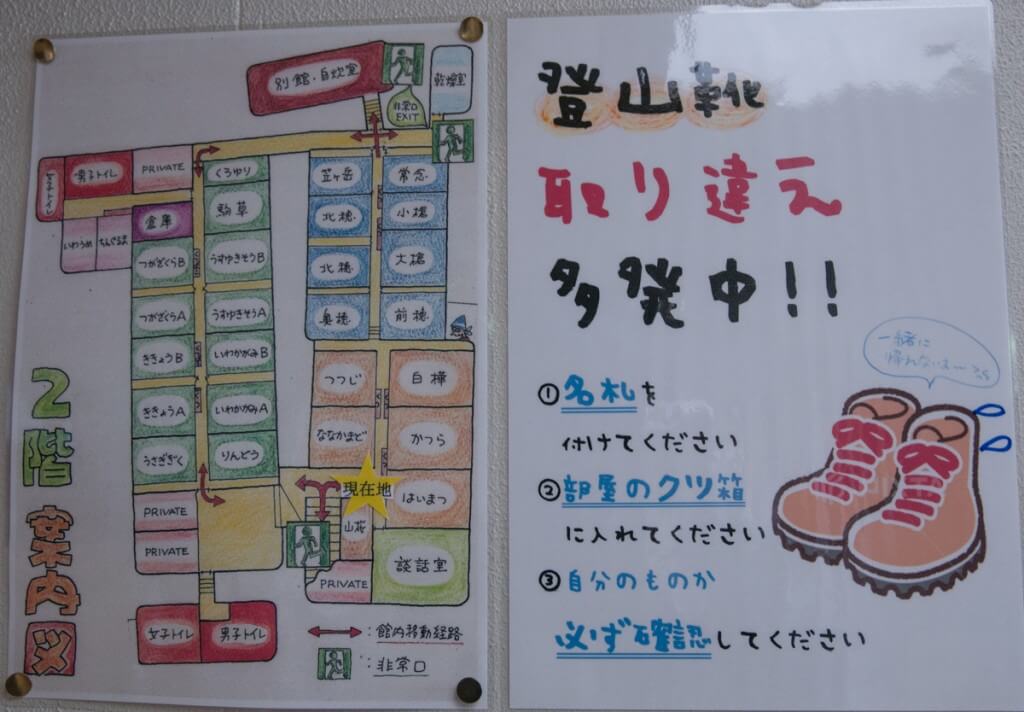 2階
案内図
別館・自炊室
乾燥室
非常口
EXIT
女子トイレ
男子トイレ
PRIVATE
くろゆり
笠ヶ岳
常念
倉庫
駒草
北穂
小槍
いわうめ
ちんぐるま
つがざくらB
うすゆきそうB
北穂
大槍
つがざくらA
うすゆきそうA
奥穂
前穂
ききょうB
いわかがみB
つつじ
白樺
ききょうA
いわかがみA
ななかまど
かつら
うさぎぎく
りんどう
現在地
はいまつ
PRIVATE
山桜
PRIVATE
談話室
PRIVATE
女子トイレ
男子トイレ
:館内移動経路
:非常口
登山靴
取り違え
多発中!!
①名札を
付けてください
②部屋のクツ箱
に入れてください
③自分のものか
必ず確認してください
一緒に
帰れないよ〜